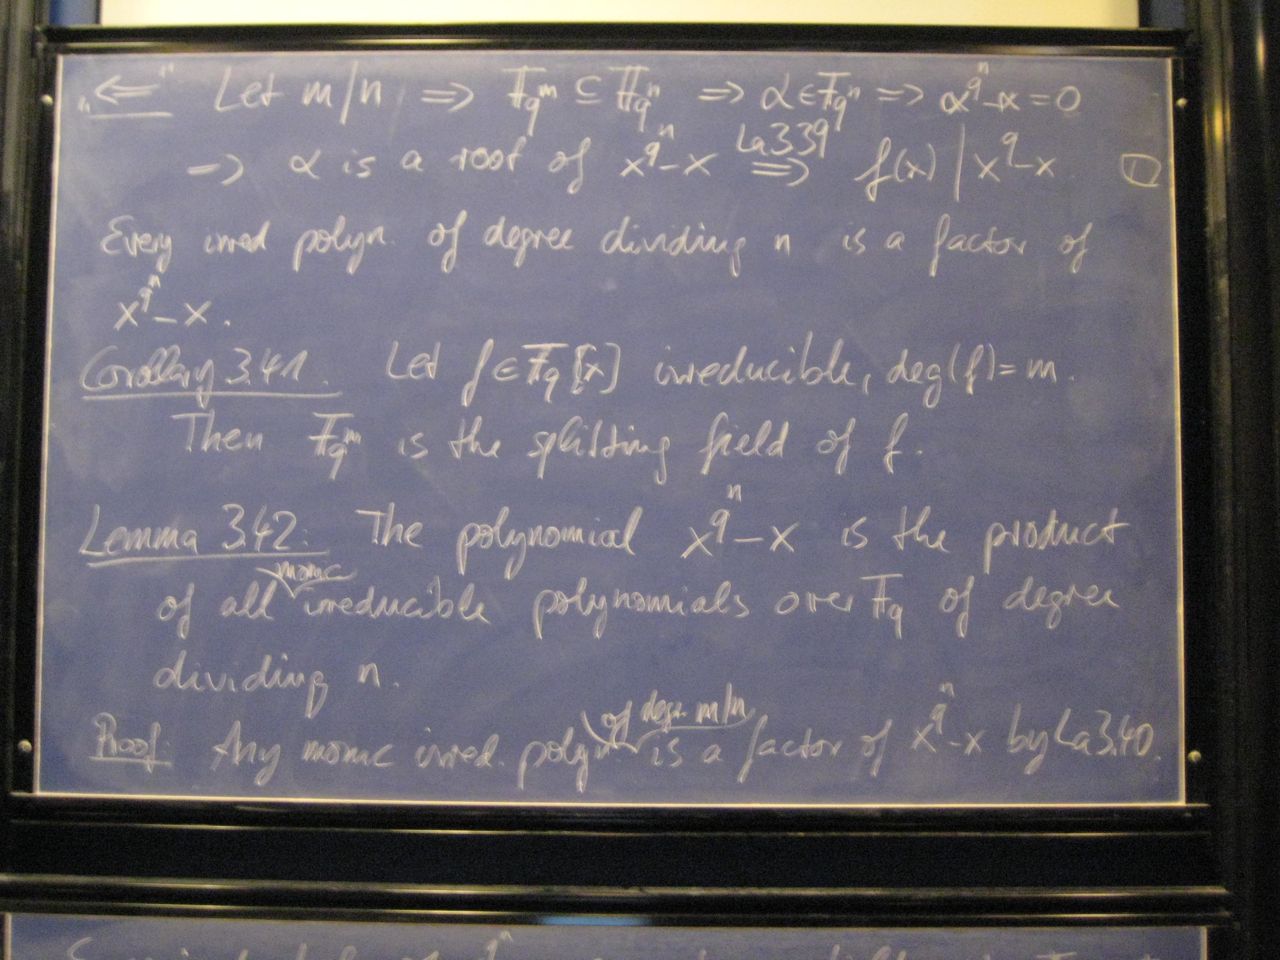 "⇐" Let m/n ⇒ F_q^m ⊆ F_q^n ⇒ α ∈ F_q^n ⇒ α^q^n - α = 0
⇒ α is a root of x^q^n - x La 3.39 ⇒ f(x) | x^q - x □
Every irred polyn. of degree dividing n is a factor of
x^q^n - x.
Corollary 3.41. Let f ∈ F_q[x] irreducible, deg(f) = m.
Then F_q^m is the splitting field of f.
Lemma 3.42: The polynomial x^q^n - x is the product
of all monic irreducible polynomials over F_q of degree
dividing n.
Proof: Any monic irred. polyn. of degr. m/n is a factor of x^q^n - x by La 3.40.